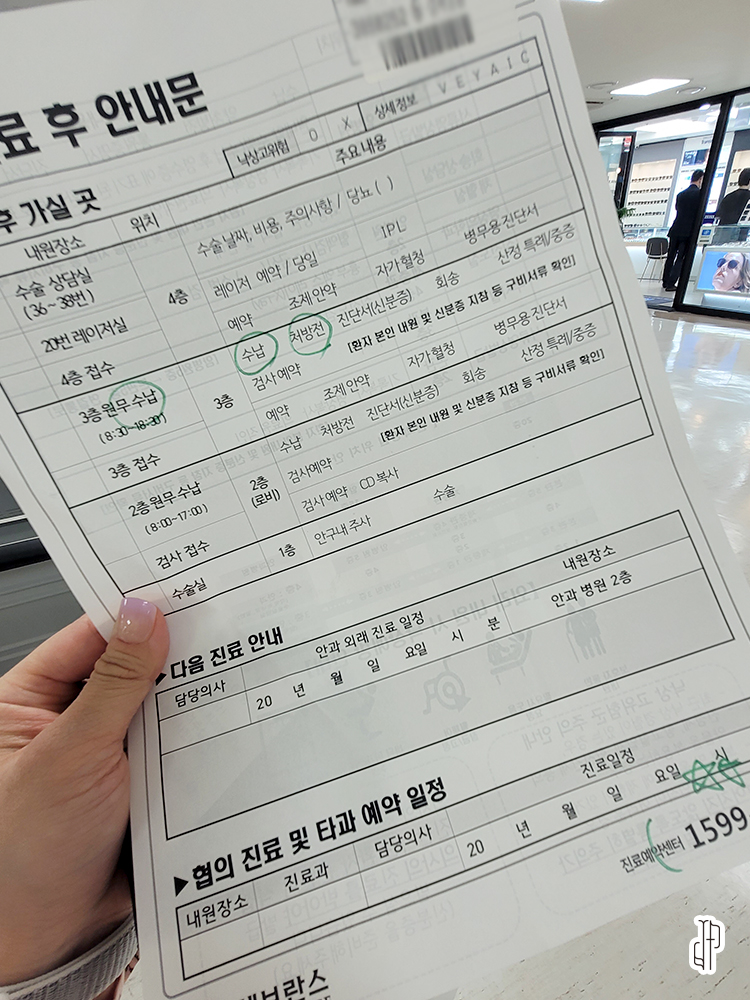 료 후 안내문
낙상고위험 O X 상세정보 V E Y A I C
후 가실 곳
내원장소 위치 주요내용
수술 상담실
(36~38번)
4층
수술 날짜, 비용, 주의사항 / 당뇨 ( )
20번 레이저실
레이저 예약 / 당일 IPL
4층 접수
예약 조제안약 자가혈청 병무용진단서
3층원무수납
(8:30~18:30)
3층
수납 처방전 진단서(신분증) 회송 산정 특례/중증
[환자 본인 내원 및 신분증 지참 등 구비서류 확인]
검사 예약
3층 접수
예약 조제안약 자가혈청 병무용진단서
2층원무 수납
(8:00~17:00)
2층
(로비)
수납 처방전 진단서(신분증) 회송 산정 특례/중증
[환자 본인 내원 및 신분증 지참 등 구비서류 확인]
검사예약
검사 접수
검사예약 CD복사
수술실 1층 안구내주사 수술
다음 진료 안내
담당의사 안과 외래 진료 일정 내원장소
20 년 월 일 요일 시 분 안과 병원 2층
▶협의 진료 및 타과 예약 일정
내원장소 진료과 담당의사 진료일정
20 년 월 일 요일 시
진료예약센터 1599
브란스